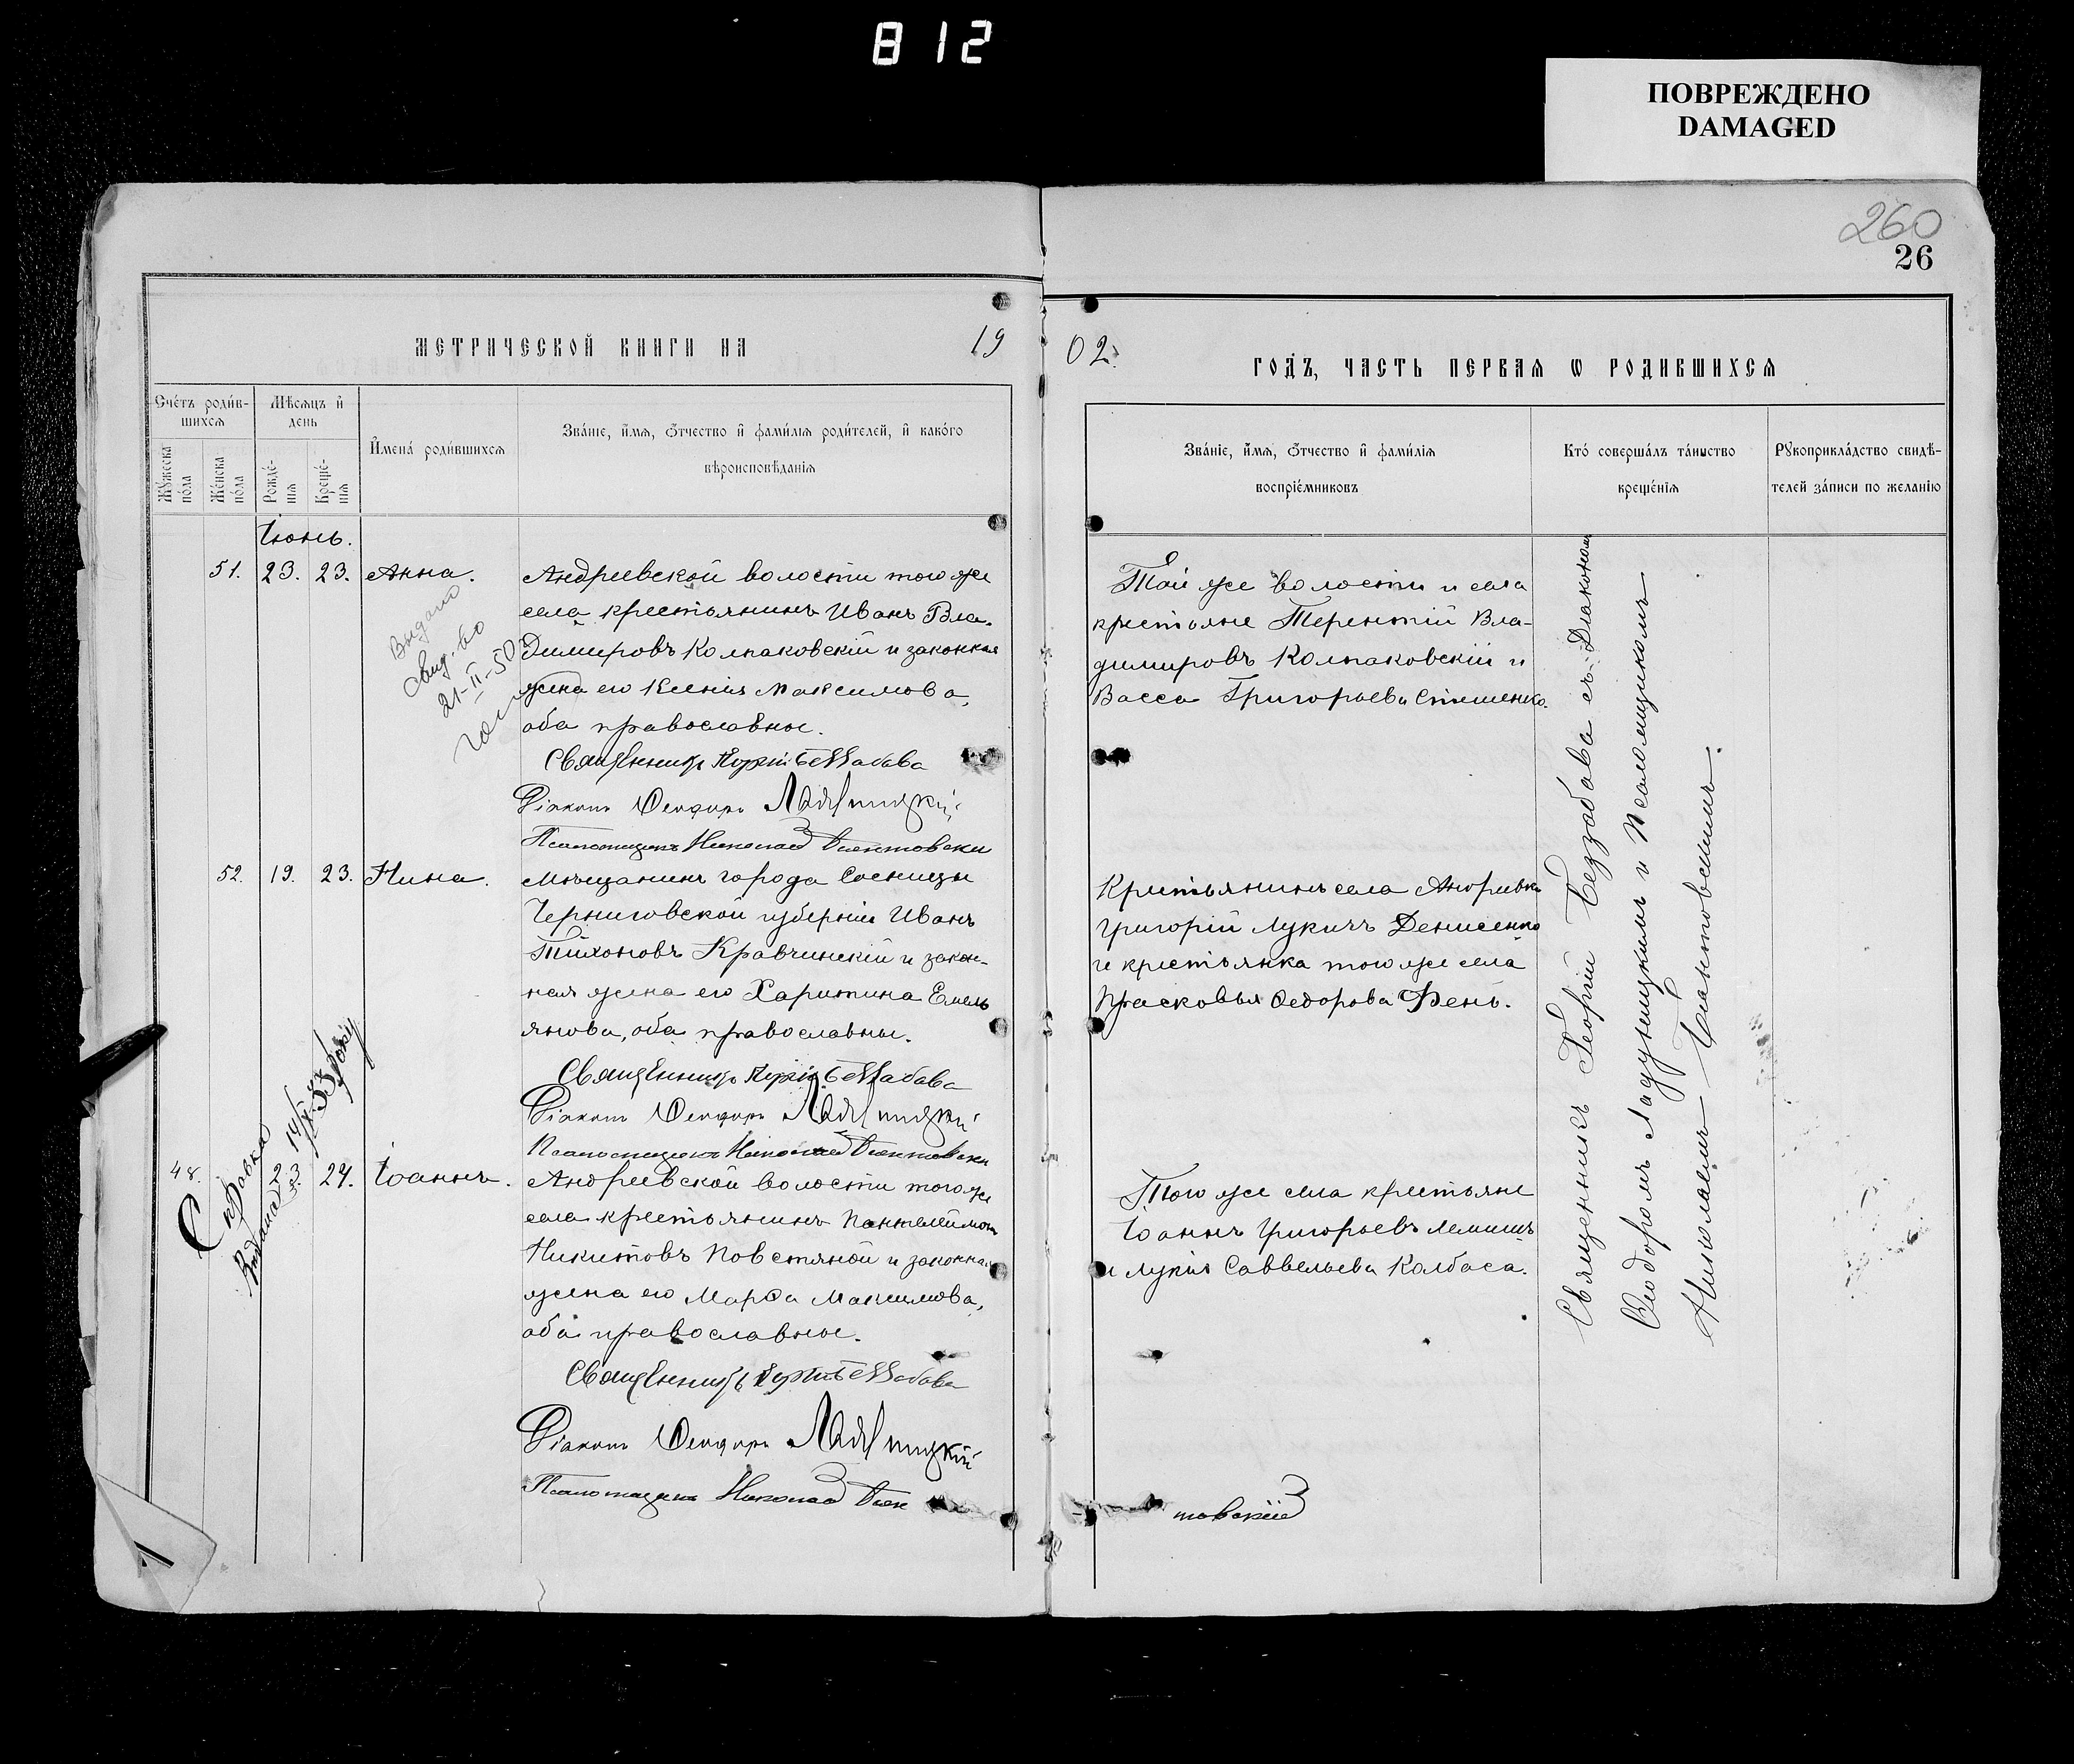 812
ПОВРЕЖДЕНО
DAMAGED
260
26
МЕТРИЧЕСКОЙ КНИГИ НА 19
Счётъ родив-
шихся
Мѣсяцъ и
день
Имена родившихся
Званіе, имя, отчество и фамилія родителей, и какого
вѣроисповѣданія
Мужеска
пола
Женска
пола
Рожде-
нія
Креще-
нія
Іюнь.
51. 23. 23. Анна.
Выдано
свид-во
21-II-50
Андреевской волости того же
села крестьянинъ Иванъ Вла-
димировъ Колпаковскій и законная
жена его Ксенія Максимова,
оба православные.
Священникъ Георгій Беззабава
Діаконъ Феодоръ Ладуницкій
Псаломщикъ Николай
52. 19. 23. Нина.
Мѣщанинъ города Сосницы
Черниговской губерніи Иванъ
Тихоновъ Кравчинскій и закон-
ная жена его Харитина Емель
янова, оба православные.
Священникъ Георгій Беззабава
Діаконъ Феодоръ Ладуницкій
Псаломщикъ Николай
48. 23. 24. Іоаннъ.
Справка
Выдана
Андреевской волости того же
села крестьянинъ Пантелеймонъ
Никитовъ Повстяной и законная
жена его Марѳа Максимова,
оба православные.
Священникъ Георгій Беззабава
Діаконъ Феодоръ Ладуницкій
Псаломщикъ Николай
02. ГОДЪ, ЧАСТЬ ПЕРВАЯ Ѡ РОДИВШИХСЯ
Званіе, имя, отчество и фамилія
воспріемниковъ
Кто совершалъ таинство
крещенія
Рукоприкладство свидѣ-
телей записи по желанію
Той же волости и села
крестьяне Терентій Вла-
димировъ Колпаковскій и
Васса Григорьева Стешенко.
Крестьянинъ села Андреевки
Григорій Лукичъ Денисенко
и крестьянка того же села
Прасковья Федорова Фень.
Того же села крестьяне
Іоаннъ Григорьевъ Лемишъ
и Лукія Саввельева Колбаса.
товскій
Священникъ Георгій Беззабава съ Діакономъ
Феодоромъ Ладуницкимъ и Псаломщикомъ
Николаемъ